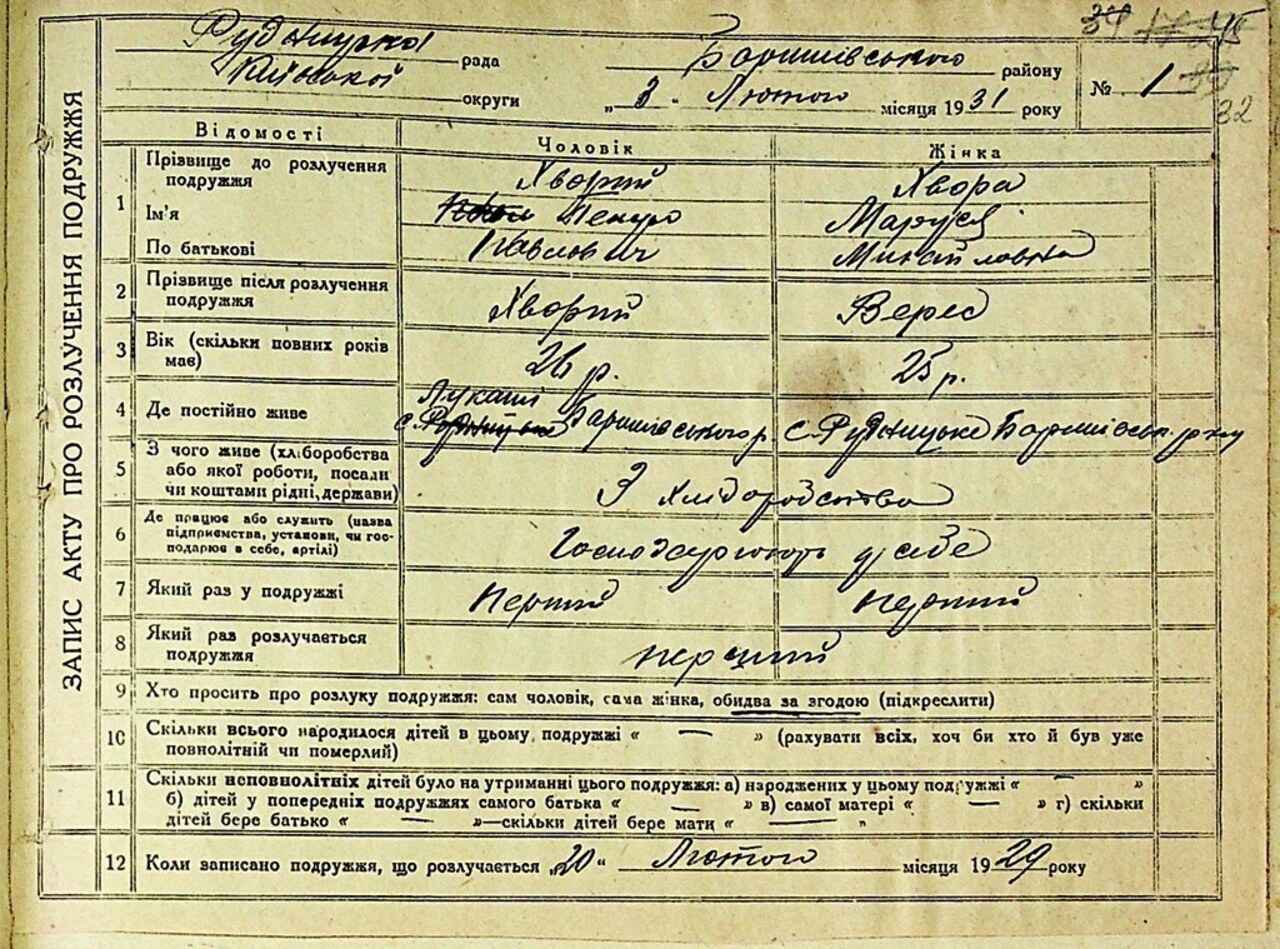 ЗАПИС АКТУ ПРО РОЗЛУЧЕННЯ ПОДРУЖЖЯ
Рудницької рада Баришівського району
Київської округи „3" Лютого місяця 1931 року № 1
32
Відомості Чоловік Жінка
1 Прізвище до розлучення подружжя Хворий Хвора
Ім'я Маруся
По батькові Павлович Михайловна
2 Прізвище після розлучення подружжя Хворий Верес
3 Вік (скільки повних років має) 26 р. 25 р.
4 Де постійно живе с. Лукаші Баришівського р. с. Рудницьке Баришівськ. р-ну
5 З чого живе (хліборобства або якої роботи, посади чи коштами рідні, держави) З хліборобства
6 Де працює або служить (назва підприємства, установи, чи господарює в себе, артілі) Господарюють у себе
7 Який раз у подружжі Перший перший
8 Який раз розлучається подружжя перший
9 Хто просить про розлуку подружжя: сам чоловік, сама жінка, обидва за згодою (підкреслити)
10 Скільки всього народилося дітей в цьому подружжі « — » (рахувати всіх, хоч би хто й був уже
повнолітній чи померлий)
11 Скільки неповнолітніх дітей було на утриманні цього подружжя: а) народжених у цьому подружжі « — »
б) дітей у попередніх подружжях самого батька « — » в) самої матері « — » г) скільки
дітей бере батько « — »—скільки дітей бере мати « — "
12 Коли записано подружжя, що розлучається „20" Лютого місяця 1929 року